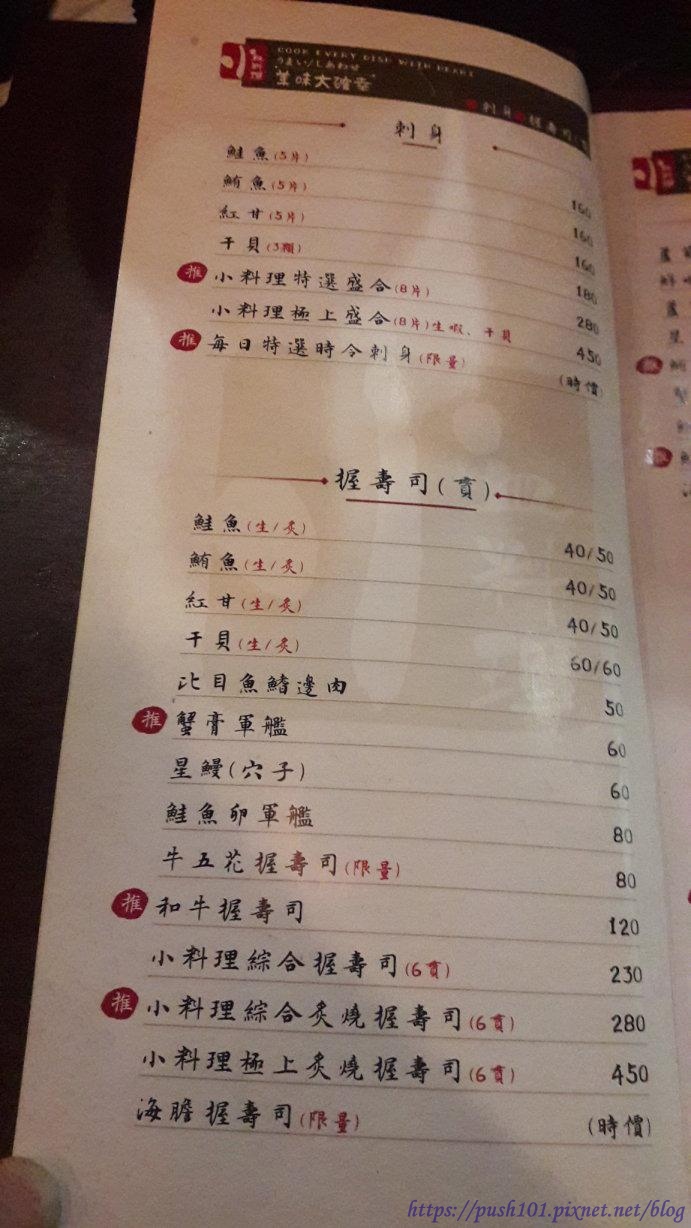 COOK EVERY DISH WITH HEART
うまい/しあわせ
美味大確幸
刺身 握壽司
刺身
鮭魚(5片) 160
鮪魚(5片) 160
紅甘(5片) 160
干貝(3顆) 180
推 小料理特選盛合(8片) 280
小料理極上盛合(8片)生蝦、干貝 450
推 每日特選時令刺身(限量) (時價)
握壽司(貫)
鮭魚(生/炙) 40/50
鮪魚(生/炙) 40/50
紅甘(生/炙) 40/50
干貝(生/炙) 60/60
比目魚鰭邊肉 50
推 蟹膏軍艦 60
星鰻(穴子) 60
鮭魚卵軍艦 80
牛五花握壽司(限量) 80
推 和牛握壽司 120
小料理綜合握壽司(6貫) 230
推 小料理綜合炙燒握壽司(6貫) 280
小料理極上炙燒握壽司(6貫) 450
海膽握壽司(限量) (時價)
https://push101.pixnet.net/blog